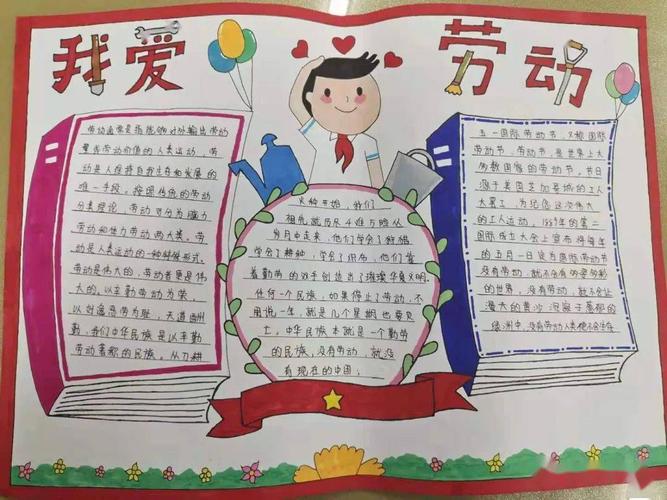 我爱 劳动
劳动通常是指能够对外输出劳动
量或劳动价值的人类运动，劳
动是人维持自我生存和发展的
唯一手段。按照传统的劳动
分类理论，劳动可分为脑力
劳动和体力劳动两大类。劳
动是人类运动的一种特殊形式。
劳动是伟大的，劳动者更是伟
大的。以辛勤劳动为荣，
以好逸恶劳为耻，天道酬
勤，我们中华民族是以辛勤
劳动著称的民族。从刀耕
火种开始，我们
祖先就历尽4难与险从
岁月中走来，他们学会了狩猎
学会了耕种，学会了织布，他们靠
着勤劳的双手创造出了璀璨华夏文明。
任何一个民族，如果停止了劳动，不
用说一年，就是几个星期也要灭
亡。中华民族本就是一个勤劳
的民族，没有劳动，就没
有现在的中国；
五一国际劳动节，又称国际
劳动节，劳动节，是世界上大
多数国家的劳动节。节日
源于美国芝加哥城的工人
大罢工，为纪念这次伟大
的工人运动，1889年的第二
国际成立大会上宣布将每年
的五月一日定为国际劳动节
没有劳动，就不会有多姿多彩
的世界，没有劳动，就不会让
漫天的黄沙
绿洲中，没有劳动人类